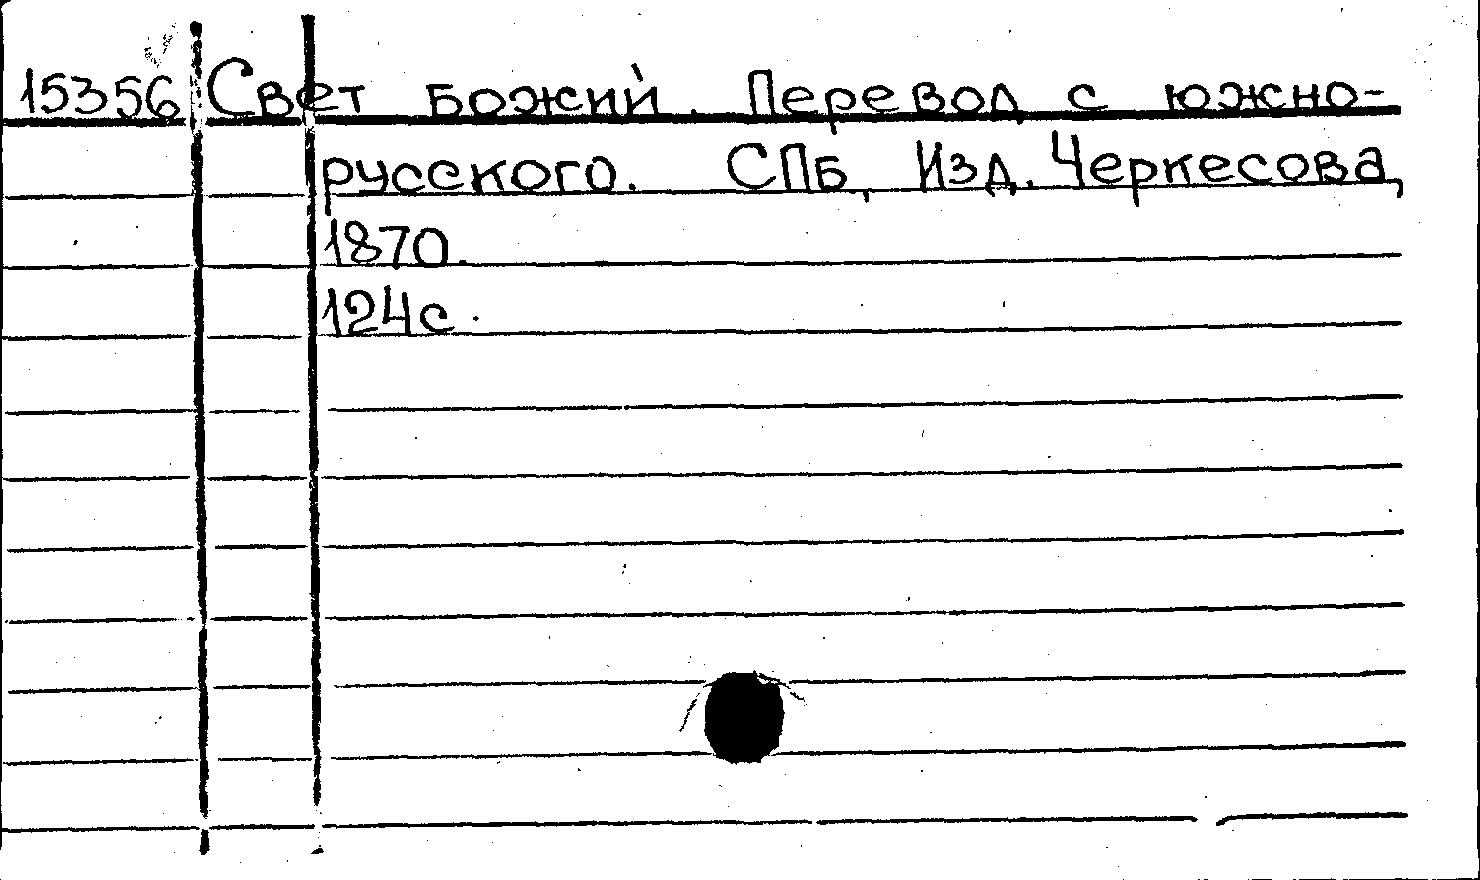 15356 Свет Божий. Перевод с южно-
русского. СПБ, Изд. Черкесова,
1870.
124с.